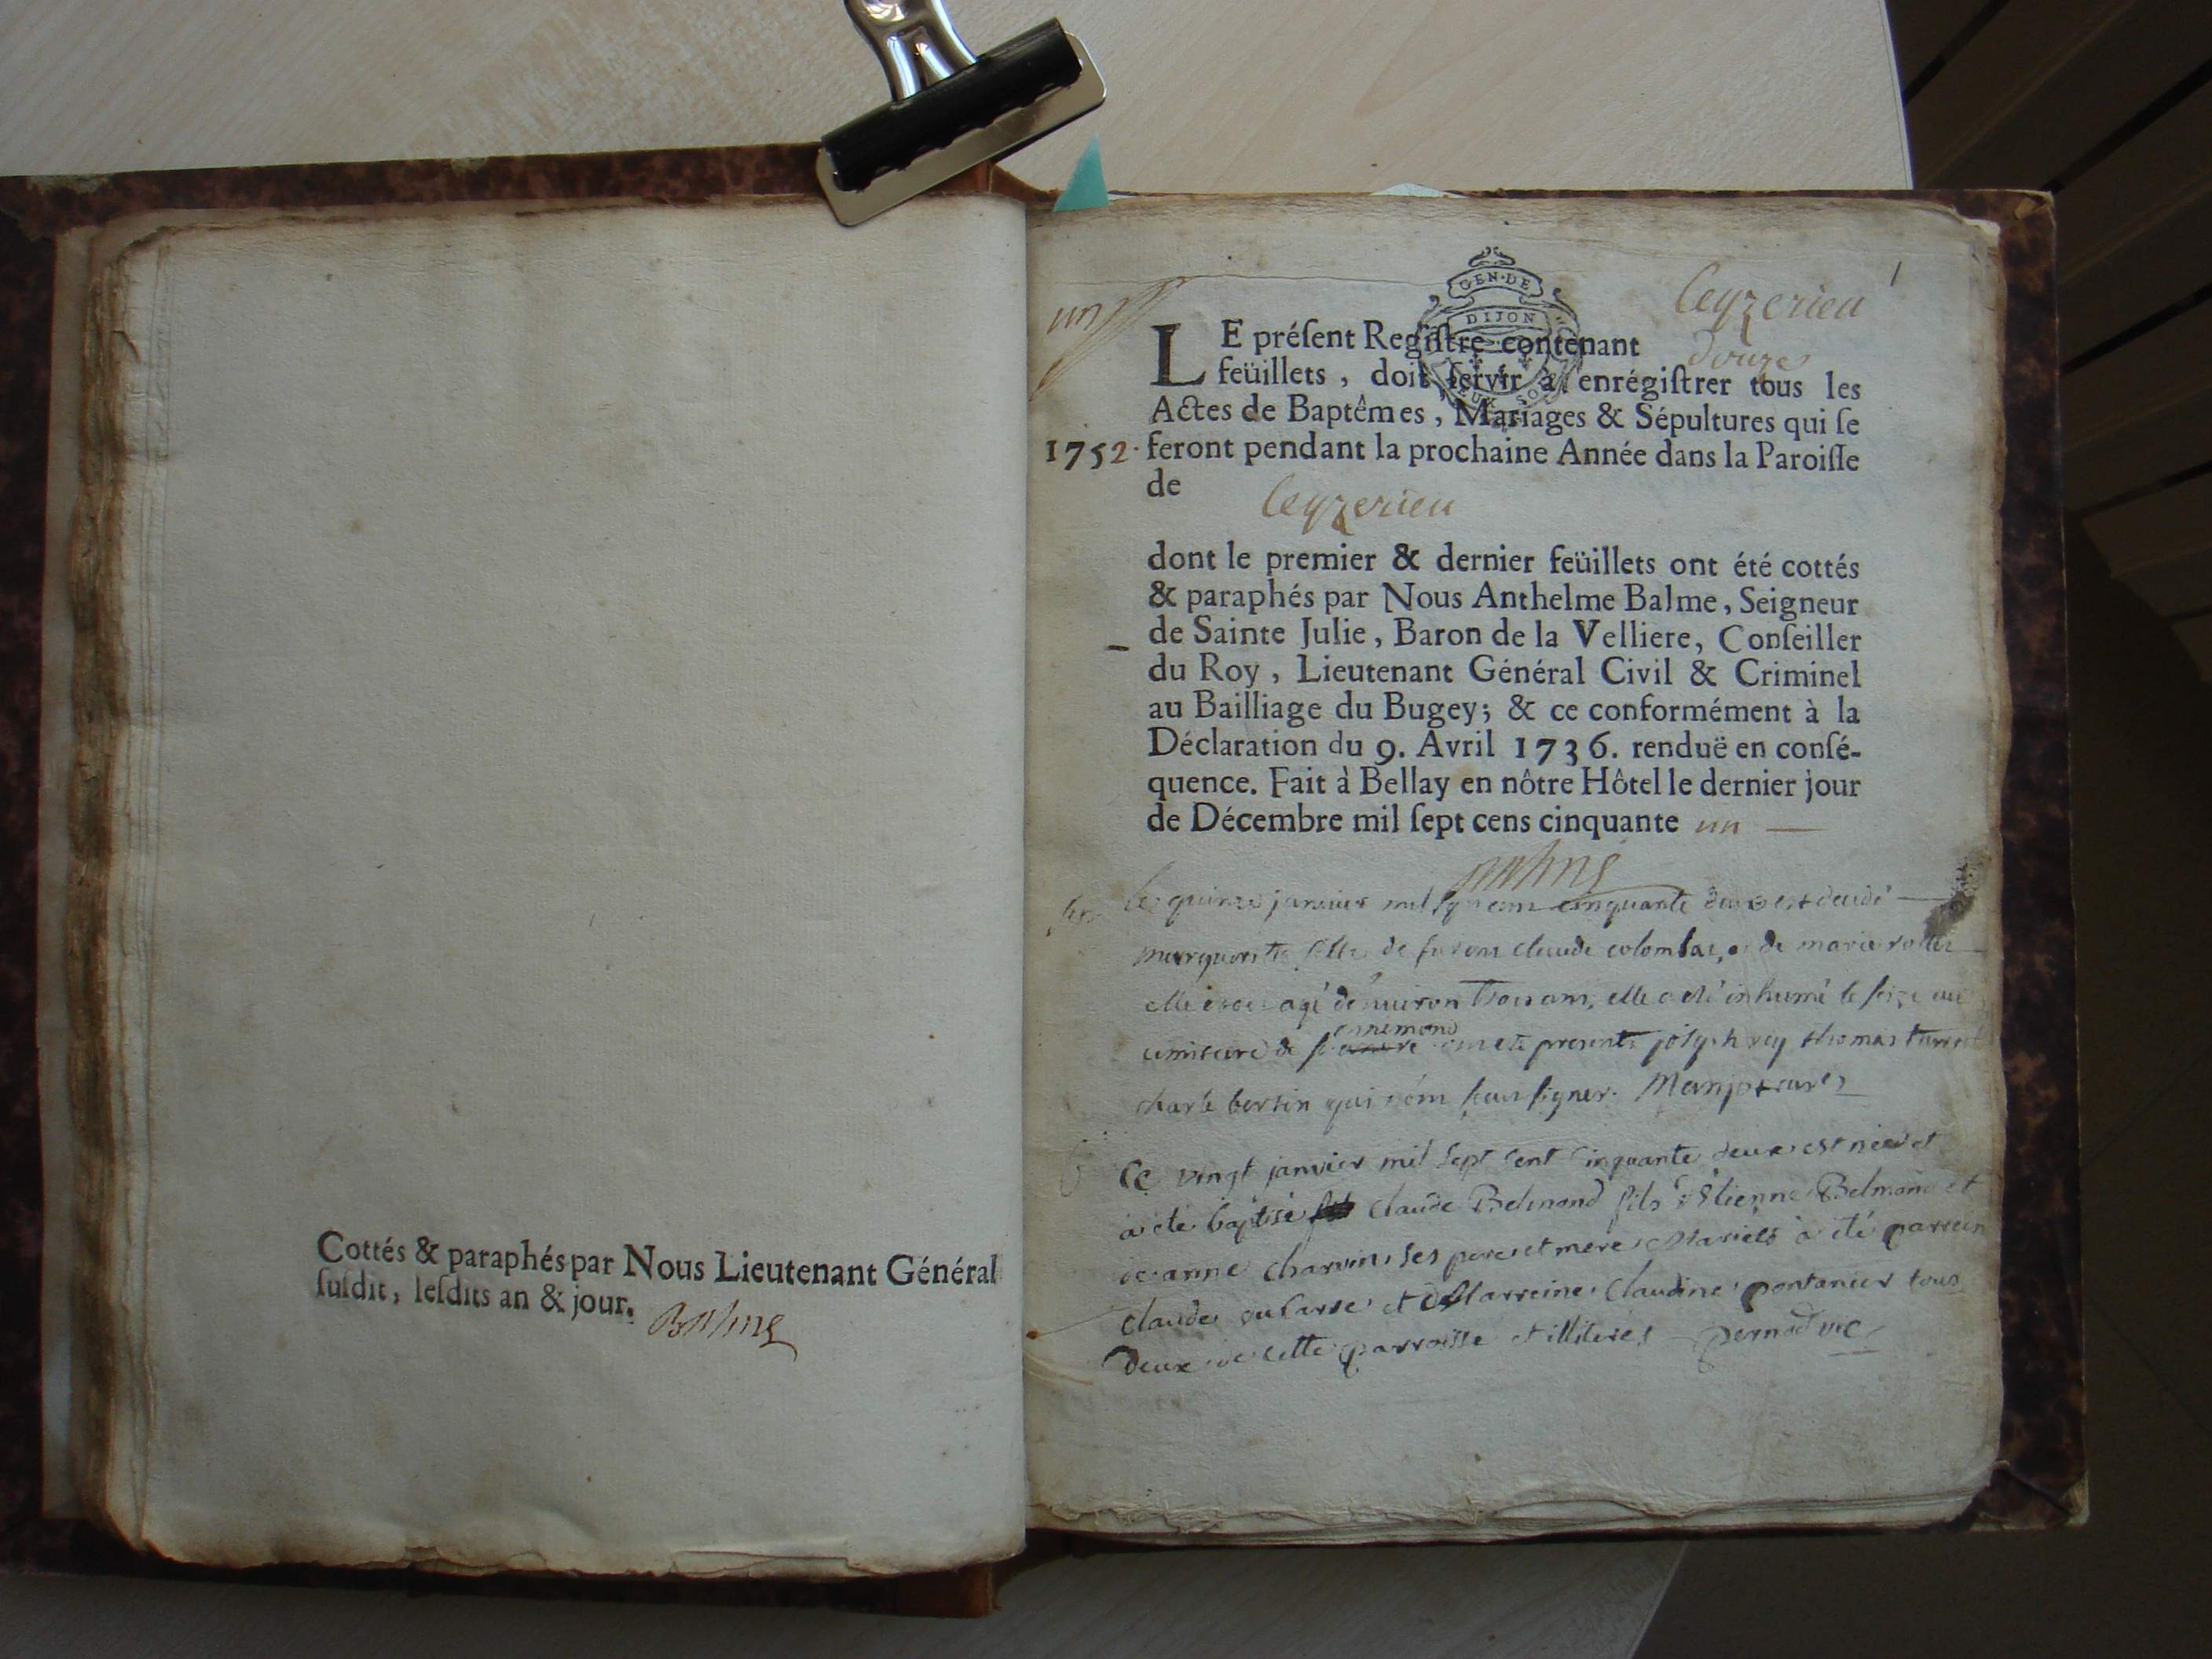 Cottés & paraphés par Nous Lieutenant Général
ſuſdit, leſdits an & jour.
Balme
1
Ceyzerieu
GEN·DE
DIJON
un
LE préſent Regiſtre contenant douze
feüillets, doit ſervir à enrégiſtrer tous les
Actes de Baptêmes, Mariages & Sépultures qui ſe
1752. feront pendant la prochaine Année dans la Paroiſſe
de
Ceyzerieu
dont le premier & dernier feüillets ont été cottés
& paraphés par Nous Anthelme Balme, Seigneur
de Sainte Julie, Baron de la Velliere, Conſeiller
du Roy, Lieutenant Général Civil & Criminel
au Bailliage du Bugey; & ce conformément à la
Déclaration du 9. Avril 1736. renduë en conſé-
quence. Fait à Bellay en nôtre Hôtel le dernier jour
de Décembre mil ſept cens cinquante un
Balme
le quinze janvier mil cinquante deux est decedé
fille de claude de marie
elle agé d'environ trois ans, elle a eté inhumé le seize au
cimitiere de presents joseph rey thomas
charle bertin qui signer.
Ce vingt janvier mil sept cent cinquante deux est né et
a eté baptisé Claude Belmond fils d'Etienne Belmond et
anne charvin ses pere et mere mariés a eté parrein
claude et Marreine Claudine pontanier tous
deux de cette parroisse et illiterés